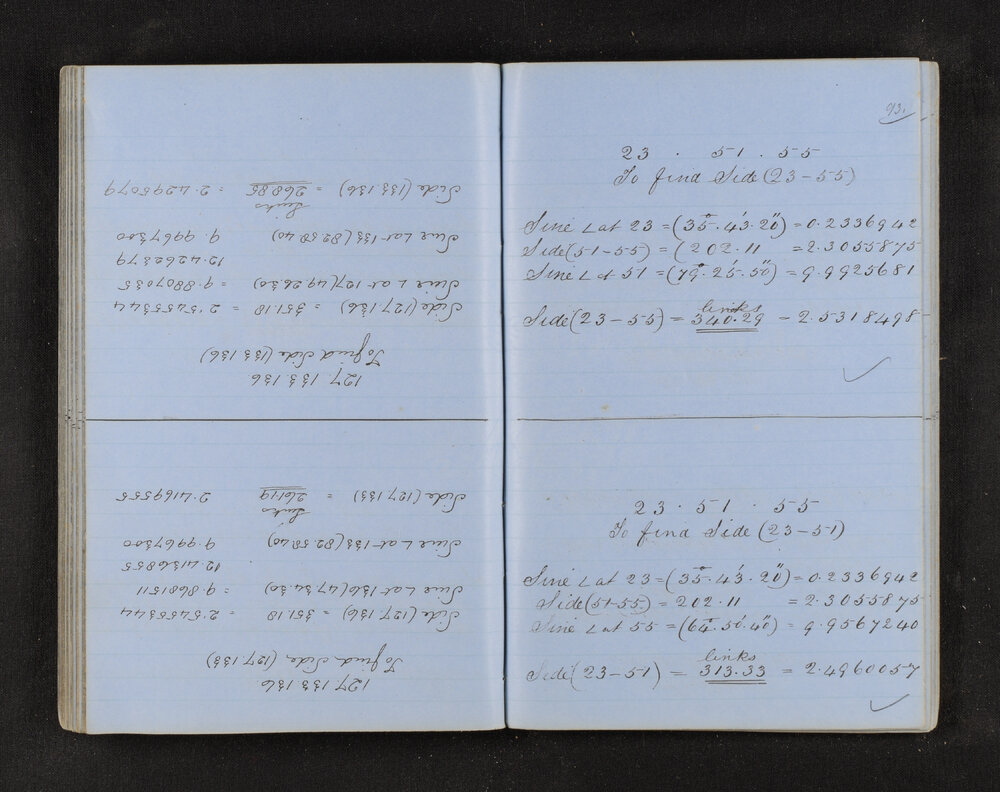 127 133 136
To find Side (127.133)
Side (127.136) = 351.18 = 2.5455344
Sine ∠ at 136 (47.34.30) = 9.8681511
12.4136855
Sine ∠ at 133 (82.58.40) 9.9967300
links
Side (127.133) = 261.19 2.4169555
127 133 136
To find Side (133.136)
Side (127.136) = 351.18 = 2.5455344
Sine ∠ at 127 (49.26.50) = 9.8807035
12.4262379
Sine ∠ at 133 (82.58.40) 9.9967300
links
Side (133.136) = 268.85 = 2.4295079
93.
23 . 51 . 55
To find Side (23-55)
Sine ∠ at 23 = (35°.43'.20") = 0.2336942
Side (51-55) = (202.11 = 2.3055875
Sine ∠ at 51 = (79°.25'.50") = 9.9925681
links
Side (23-55) = 340.29 = 2.5318498
23 . 51 . 55
To find Side (23-51)
Sine ∠ at 23 = (35°.43'.20") = 0.2336942
Side (51-55) = 202.11 = 2.3055875
Sine ∠ at 55 = (64°.50'.40") = 9.9567240
links
Side (23-51) = 313.33 = 2.4960057